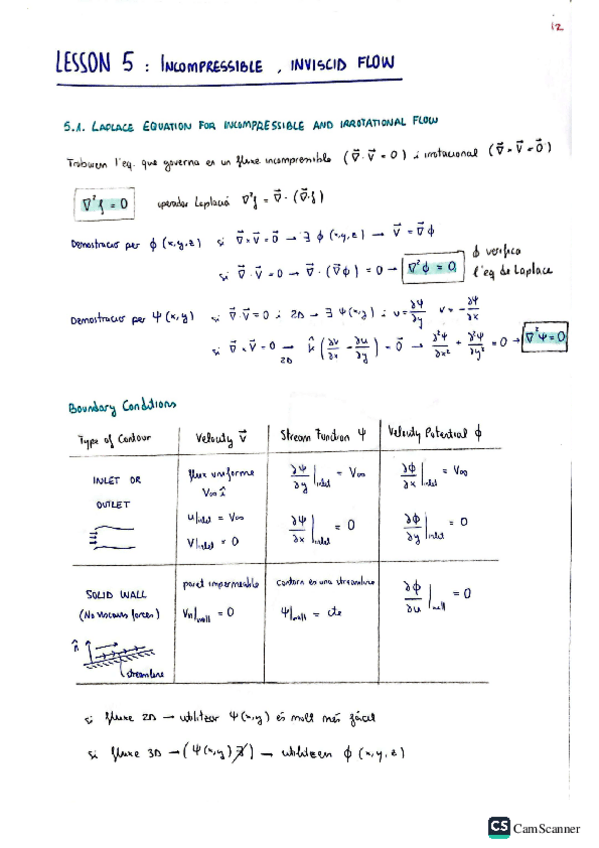 12
LESSON 5 : INCOMPRESSIBLE , INVISCID FLOW
5.1. LAPLACE EQUATION FOR INCOMPRESSIBLE AND IRROTATIONAL FLOW
Trobarem l'eq. que governa en un fluxe incompressible (∇⃗·V⃗ = 0) i irrotacional (∇⃗×V⃗ = 0⃗)
∇²f = 0 operador Laplacià ∇²f = ∇⃗·(∇⃗f)
Demostració per ϕ(x,y,z) si ∇⃗×V⃗ = 0⃗ → ∃ ϕ(x,y,z) → V⃗ = ∇⃗ϕ
si ∇⃗·V⃗ = 0 → ∇⃗·(∇⃗ϕ) = 0 → ∇²ϕ = 0
ϕ verifica
l'eq de Laplace
Demostració per Ψ(x,y) si ∇⃗·V⃗ = 0 i 2D → ∃ Ψ(x,y) : u = ∂Ψ/∂y v = -∂Ψ/∂x
si ∇⃗×V⃗ = 0 → 2D k̂ (∂v/∂x - ∂u/∂y) = 0⃗ → ∂²Ψ/∂x² + ∂²Ψ/∂y² = 0 → ∇²Ψ = 0
Boundary Conditions
Type of Contour Velocity V⃗ Stream Function Ψ Velocity Potential ϕ
INLET OR
OUTLET
fluxe uniforme
V∞ î
u|inlet = V∞
V|inlet = 0
∂Ψ/∂y|inlet = V∞
∂Ψ/∂x|inlet = 0
∂ϕ/∂x|inlet = V∞
∂ϕ/∂y|inlet = 0
SOLID WALL
(No viscous forces)
n̂
streamline
paret impermeable
Vn|wall = 0
contorn és una streamline
Ψ|wall = cte
∂ϕ/∂n|wall = 0
si fluxe 2D → utilitzar Ψ(x,y) és molt més fàcil
si fluxe 3D → (Ψ(x,y) ∄) → utilitzem ϕ(x,y,z)
CS CamScanner